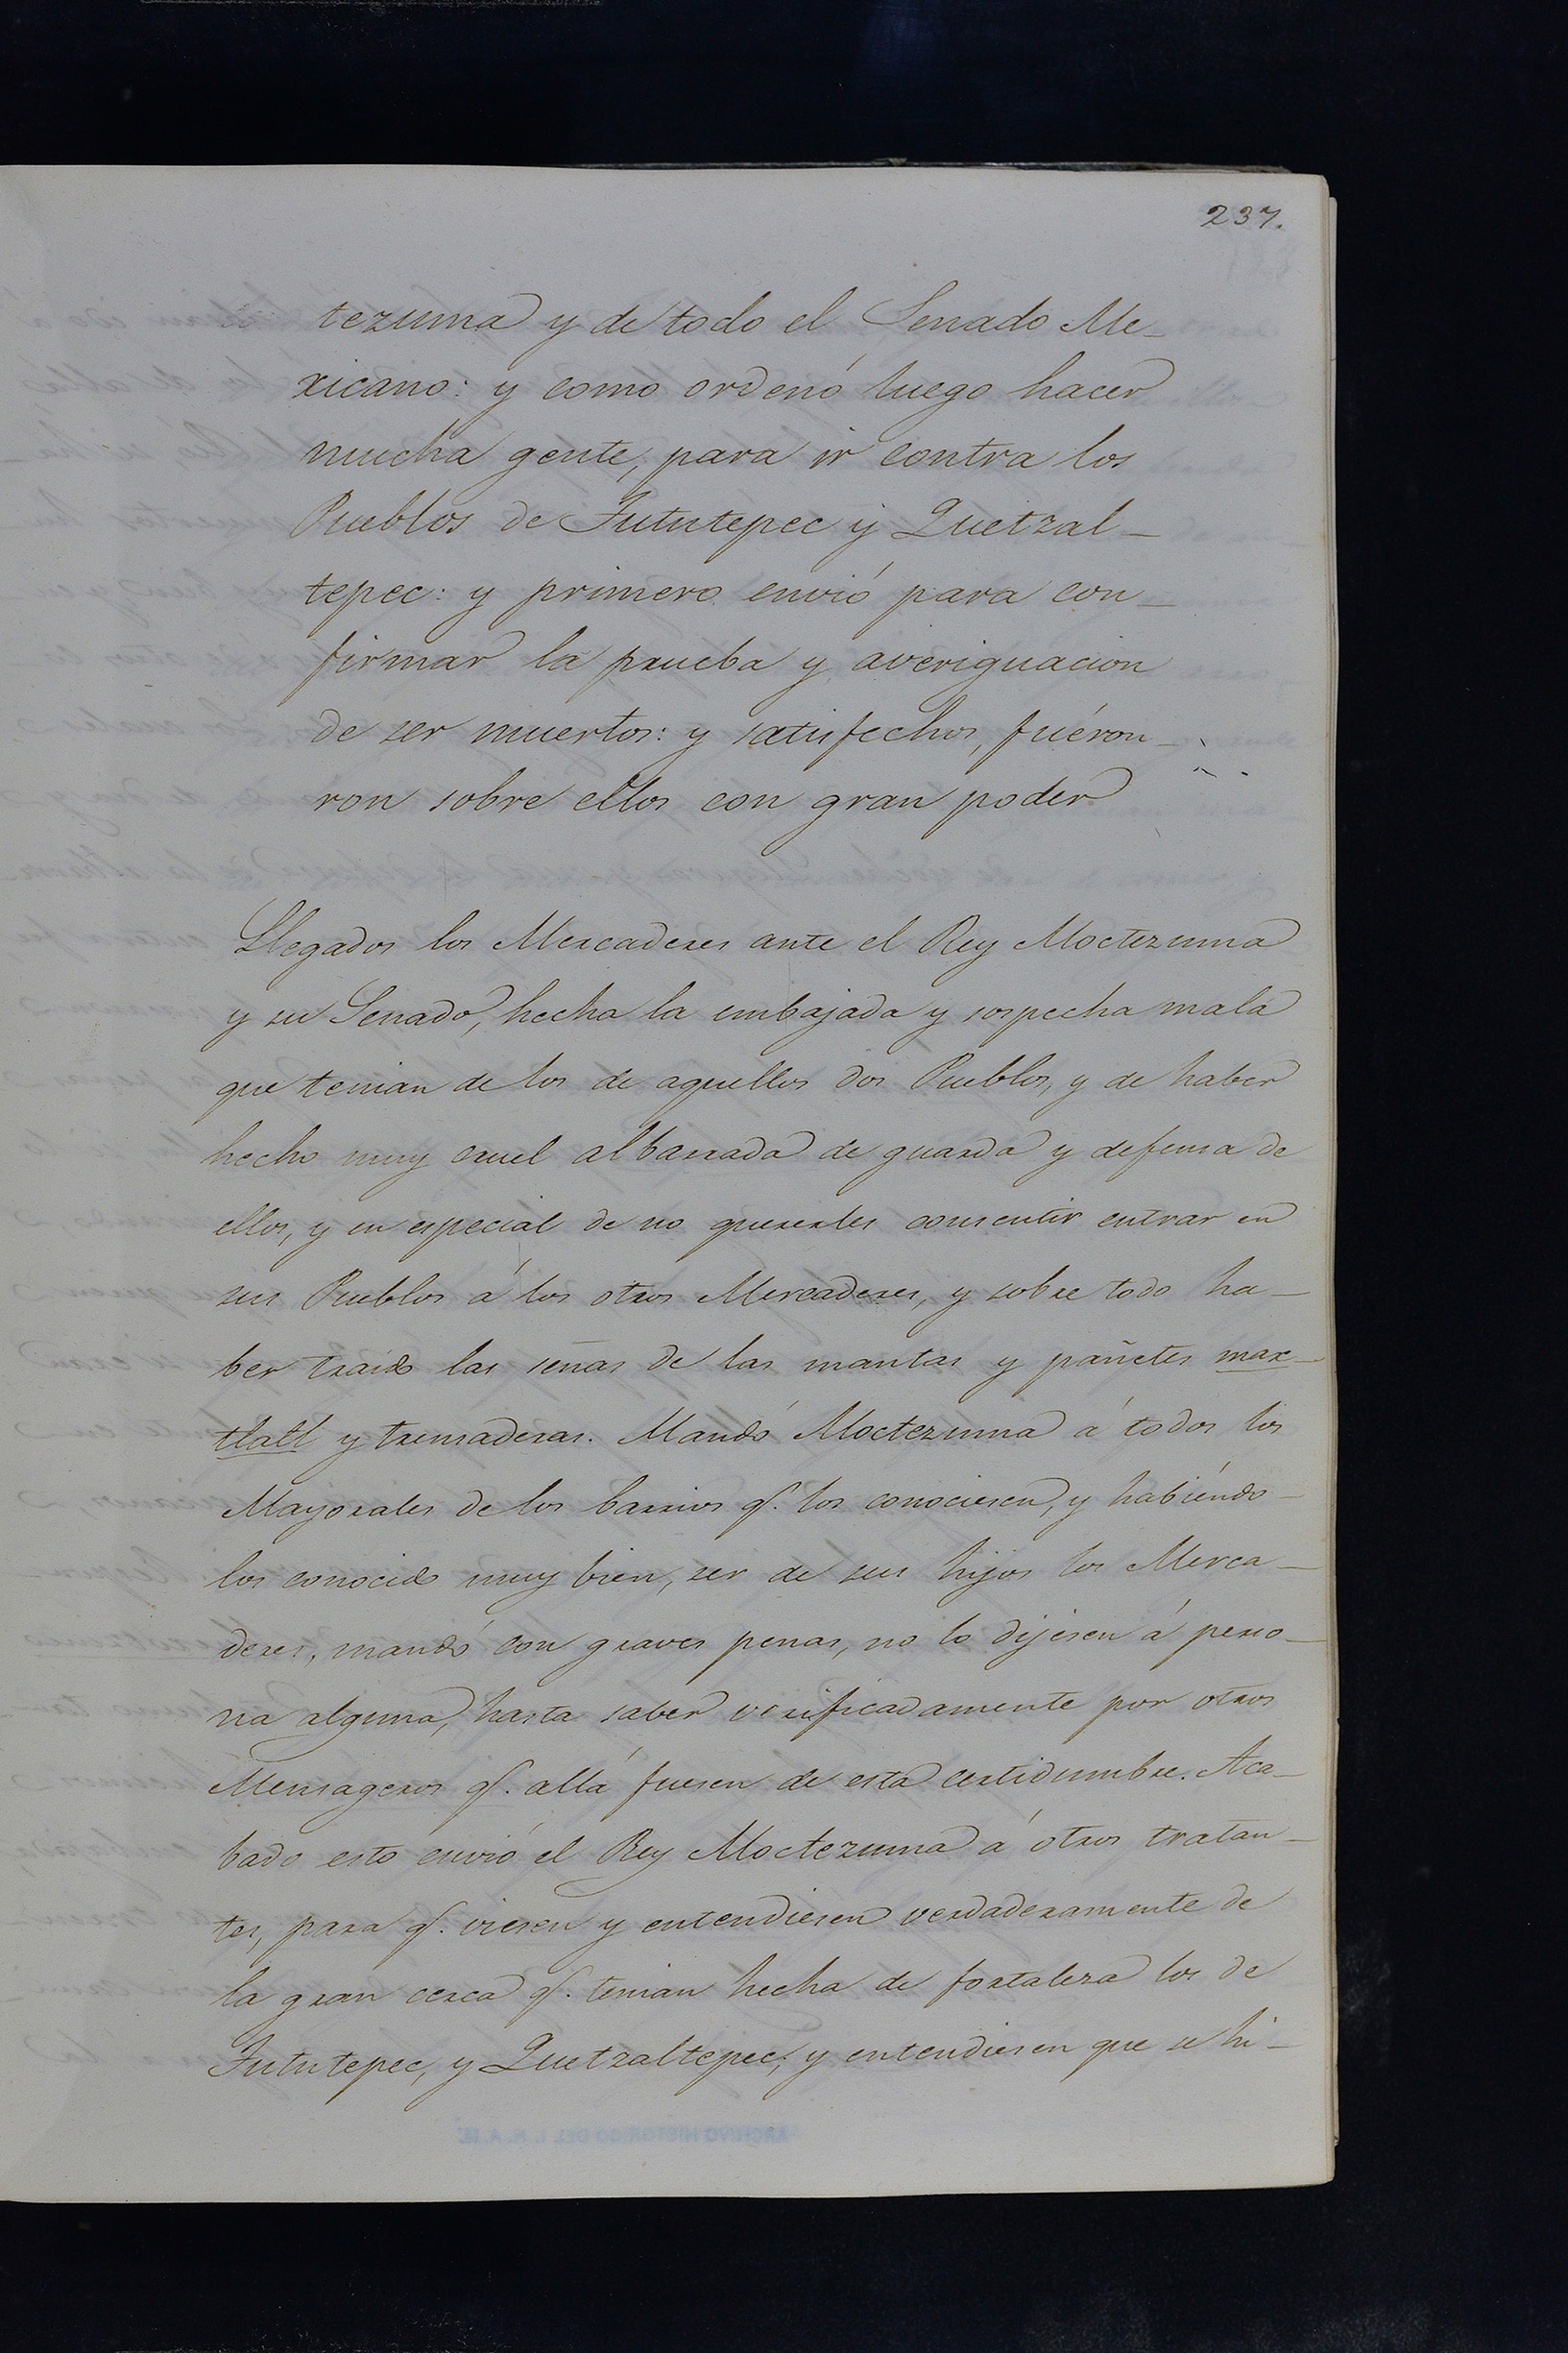 237.
tezuma y de todo el Senado Me-
xicano: y como ordenó luego hacer
mucha gente, para ir contra los
Pueblos de Tututepec y Quetzal-
tepec: y primero envió para con-
firmar la prueba y averiguacion
de ser muertos: y satisfechos, fuéron-
ron sobre ellos con gran poder
Llegados los Mercaderes ante el Rey Moctezuma
y su Senado, hecha la embajada y sospecha mala
que tenian de los de aquellos dos Pueblos, y de haber
hecho muy cruel albarrada de guarda y defensa de
ellos, y en especial de no quererles consentir entrar en
sus Pueblos á los otros Mercaderes, y sobre todo ha-
ber traido las señas de las mantas y pañetes max-
tlatl y trensaderas. Mandó Moctezuma á todos los
Mayorales de los barrios q. los conociesen, y habiéndo-
los conocido muy bien, ser de sus hijos los Merca-
deres, mandó con graves penas, no lo dijesen á perso-
na alguna, hasta saber verificadamente por otros
Mensageros q. allá fuesen de esta certidumbre. Aca-
bado esto envió el Rey Moctezuma á otros tratan-
tes, para q. viesen y entendiesen verdaderamente de
la gran cerca q. tenian hecha de fortaleza los de
Tututepec, y Quetzaltepec; y entendiesen que se hi-
ARCHIVO HISTORICO DEL I. N. A. H.